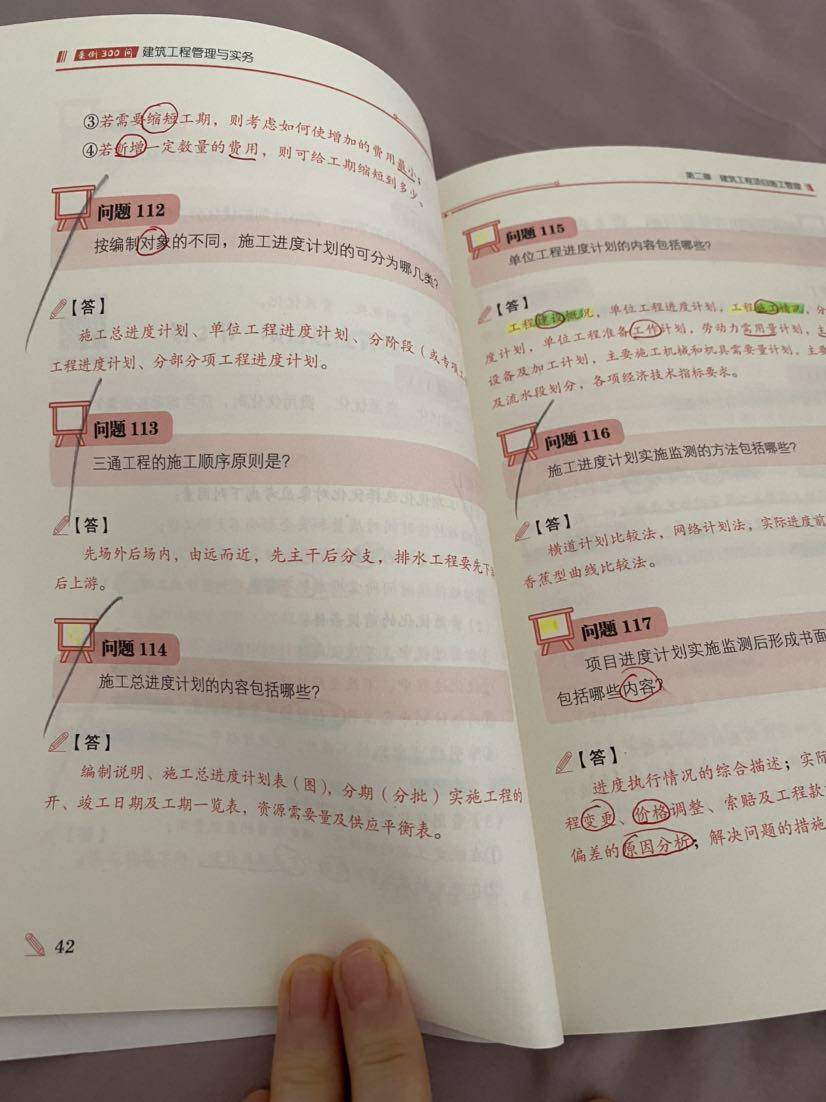 案例 300 问 建筑工程管理与实务
③若需要缩短工期，则考虑如何使增加的费用最小；
④若新增一定数量的费用，则可给工期缩短到多少。
问题 112
按编制对象的不同，施工进度计划的可分为哪几类?
【答】
施工总进度计划、单位工程进度计划、分阶段（或专项工
工程进度计划、分部分项工程进度计划。
问题 113
三通工程的施工顺序原则是?
【答】
先场外后场内，由远而近，先主干后分支，排水工程要先下
后上游。
问题 114
施工总进度计划的内容包括哪些?
【答】
编制说明、施工总进度计划表（图），分期（分批）实施工程的
开、竣工日期及工期一览表，资源需要量及供应平衡表。
42
第二章 建筑工程项目施工管理
问题 115
单位工程进度计划的内容包括哪些?
【答】
工程建设概况，单位工程进度计划，工程施工情况，分
度计划，单位工程准备工作计划，劳动力需用量计划，主
设备及加工计划，主要施工机械和机具需要量计划，主要
及流水段划分，各项经济技术指标要求。
问题 116
施工进度计划实施监测的方法包括哪些?
【答】
横道计划比较法，网络计划法，实际进度前
香蕉型曲线比较法。
问题 117
项目进度计划实施监测后形成书面
包括哪些内容?
【答】
进度执行情况的综合描述；实际
程变更、价格调整、索赔及工程款
偏差的原因分析；解决问题的措施